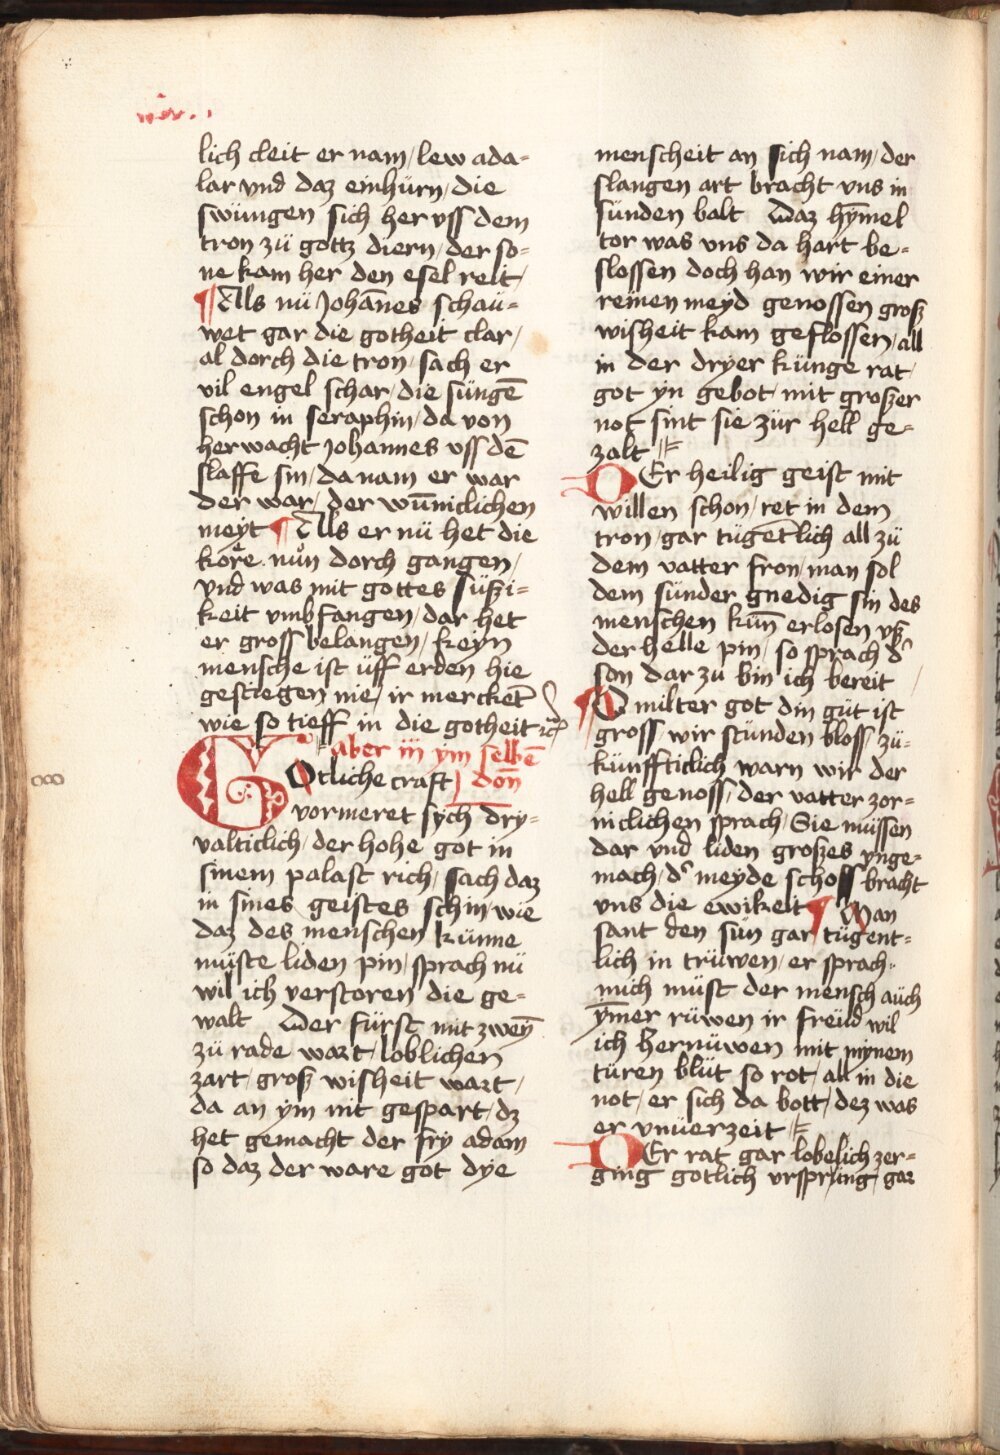 lich cleit er nam / lew ada-
lar vnd daz einhürn / die
swüngen sich her vss dem
tron zü gottz diern / der so-
ne kam her den esel reit /
¶ Als nü Johānes schaü-
wet gar die gotheit clar /
al dorch die tron / sach er
vil engel schar / die süngē
schon in seraphin / da von
herwacht Johannes vss dē
slaffe sin / da nam er war
der war / der wūniclichen
meyt ¶ Als er nü het die
köre nün dorch gangen /
vnd was mit gottes süßi-
keit vmbfangen / dar het
er gross belangen / keyn
mensche ist üff erden hie
gestiegen nie / ir mercket
wie so tieff in die gotheit
aber iii ym selbē
don
GOtliche craft
vormeret sych dry-
valticlich / der hohe got in
sinem palast rich / sach daz
in sines geistes schin / wie
daz des menschen künne
müste liden pin / sprach nü
wil ich verstoren die ge-
walt Der fürst mit zweȳ
zü rade wart / loblichen
zart / groß wisheit wart /
da an ym nit gespart / dz
het gemacht der fry adam
so daz der ware got dye
menscheit an sich nam / der
slangen art bracht vns in
sünden balt Daz hȳmel
tor was vns da hart be-
slossen doch han wir einer
reinen meyd genossen groß
wisheit kam geflossen / all
in der dryer künge rat /
got yn gebot / mit großer
not sint sie zür hell ge-
zalt
DEr heilig geist mit
willen schon / ret in dem
tron / gar tügentlich all zü
dem vatter fron / man sol
dem sünder gnedig sin des
menschen kūn erlosen vß
der helle pin / so sprach d'
son dar zu bin ich bereit
¶ O milter got din güt ist
gross / wir stünden bloss / zü-
künfticlich warn wir der
hell genoss / der vatter zor-
niclichen sprach / Sie müssen
dar vnd liden großes ynge-
mach / d' meyde schoss bracht
vns die ewikeit ¶ Man
sant den sün gar tügent-
lich in trüwen / er sprach /
mich müst der mensch aüch
ȳmer rüwen ir freüd wil
ich hernüwen mit mynem
türen blüt so rot / all in die
not / er sich da bott / dez was
er vnüerzeit /
DEr rat gar lobelich zer-
ging gotlich vrsprüng / gar